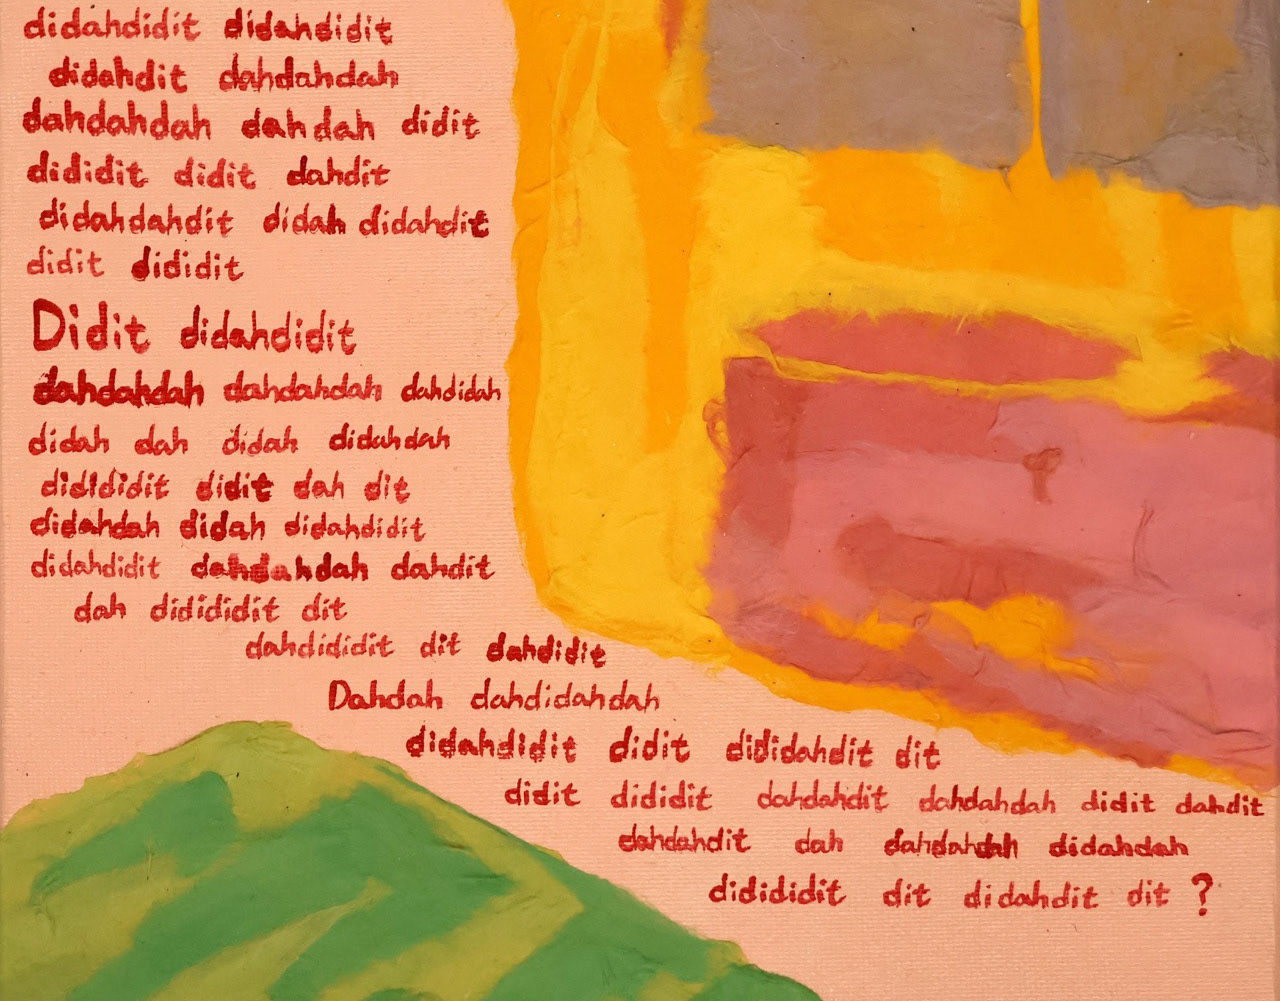 didahdidit didahdidit
didahdit dahdahdah
dahdahdah dahdah didit
dididit didit dahdit
didahdahdit didah didahdit
didit dididit
Didit didahdidit
dahdahdah dahdahdah dahdidah
didah dah didah didahdah
didididit didit dah dit
didahdah didah didahdidit
didahdidit dahdahdah dahdit
dah didididit dit
dahdididit dit dahdidit
Dahdah dahdidahdah
didahdidit didit dididahdit dit
didit dididit dahdahdit dahdahdah didit dahdit
dahdahdit dah dahdahdah didahdah
didididit dit didahdit dit ?